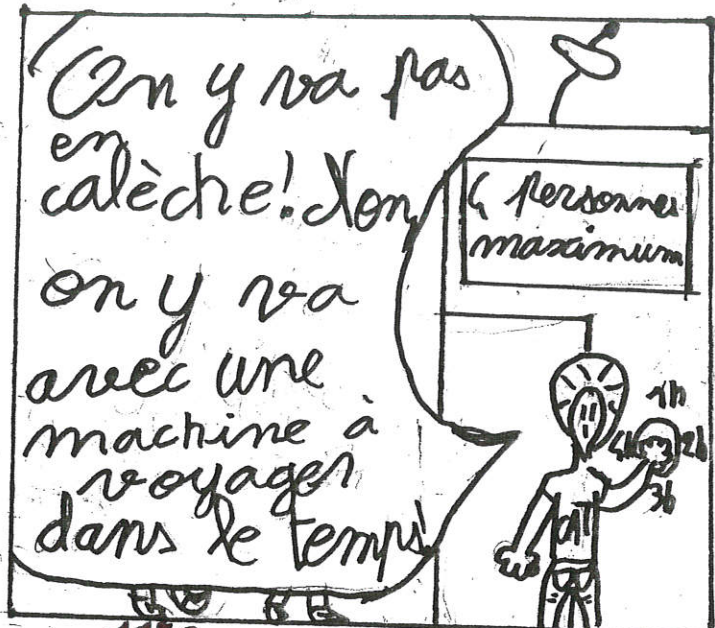 On y va pas
en
calèche! Non
on y va
avec une
machine à
voyager
dans le temps!
4 personnes
maximum
1h
4h 2h
3h